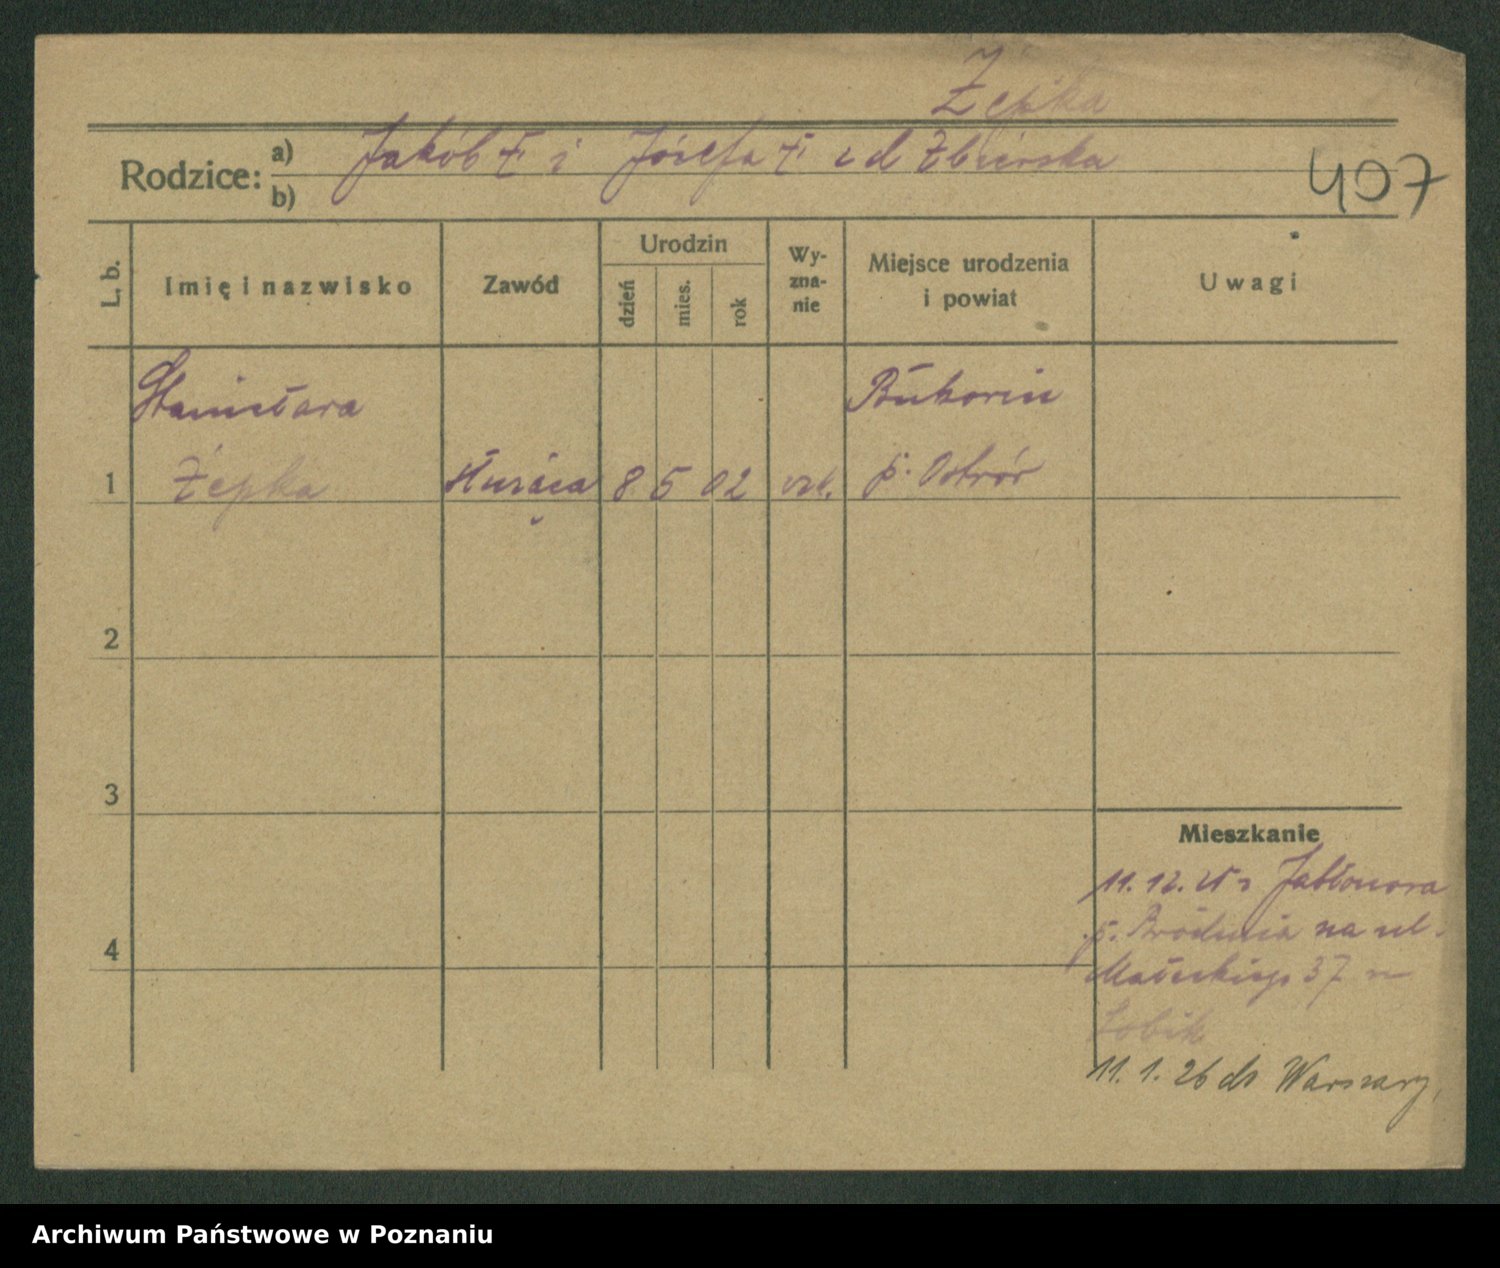 Żepka
Rodzice: a) Jakób Ż i Józefa Ż z d Zbierska
b)
407
L. b.
Imię i nazwisko
Zawód
Urodzin
dzień
mies.
rok
Wy-
zna-
nie
Miejsce urodzenia
i powiat
Uwagi
Stanisława
Żepka
1
służąca
8 5 02
rzk.
p. Ostrów
2
3
4
Mieszkanie
11.12.25 z Jabłonowa
p. Brodnica na ul.
Małeckiego 37 u
11.1.26 do Warszawy,
Archiwum Państwowe w Poznaniu